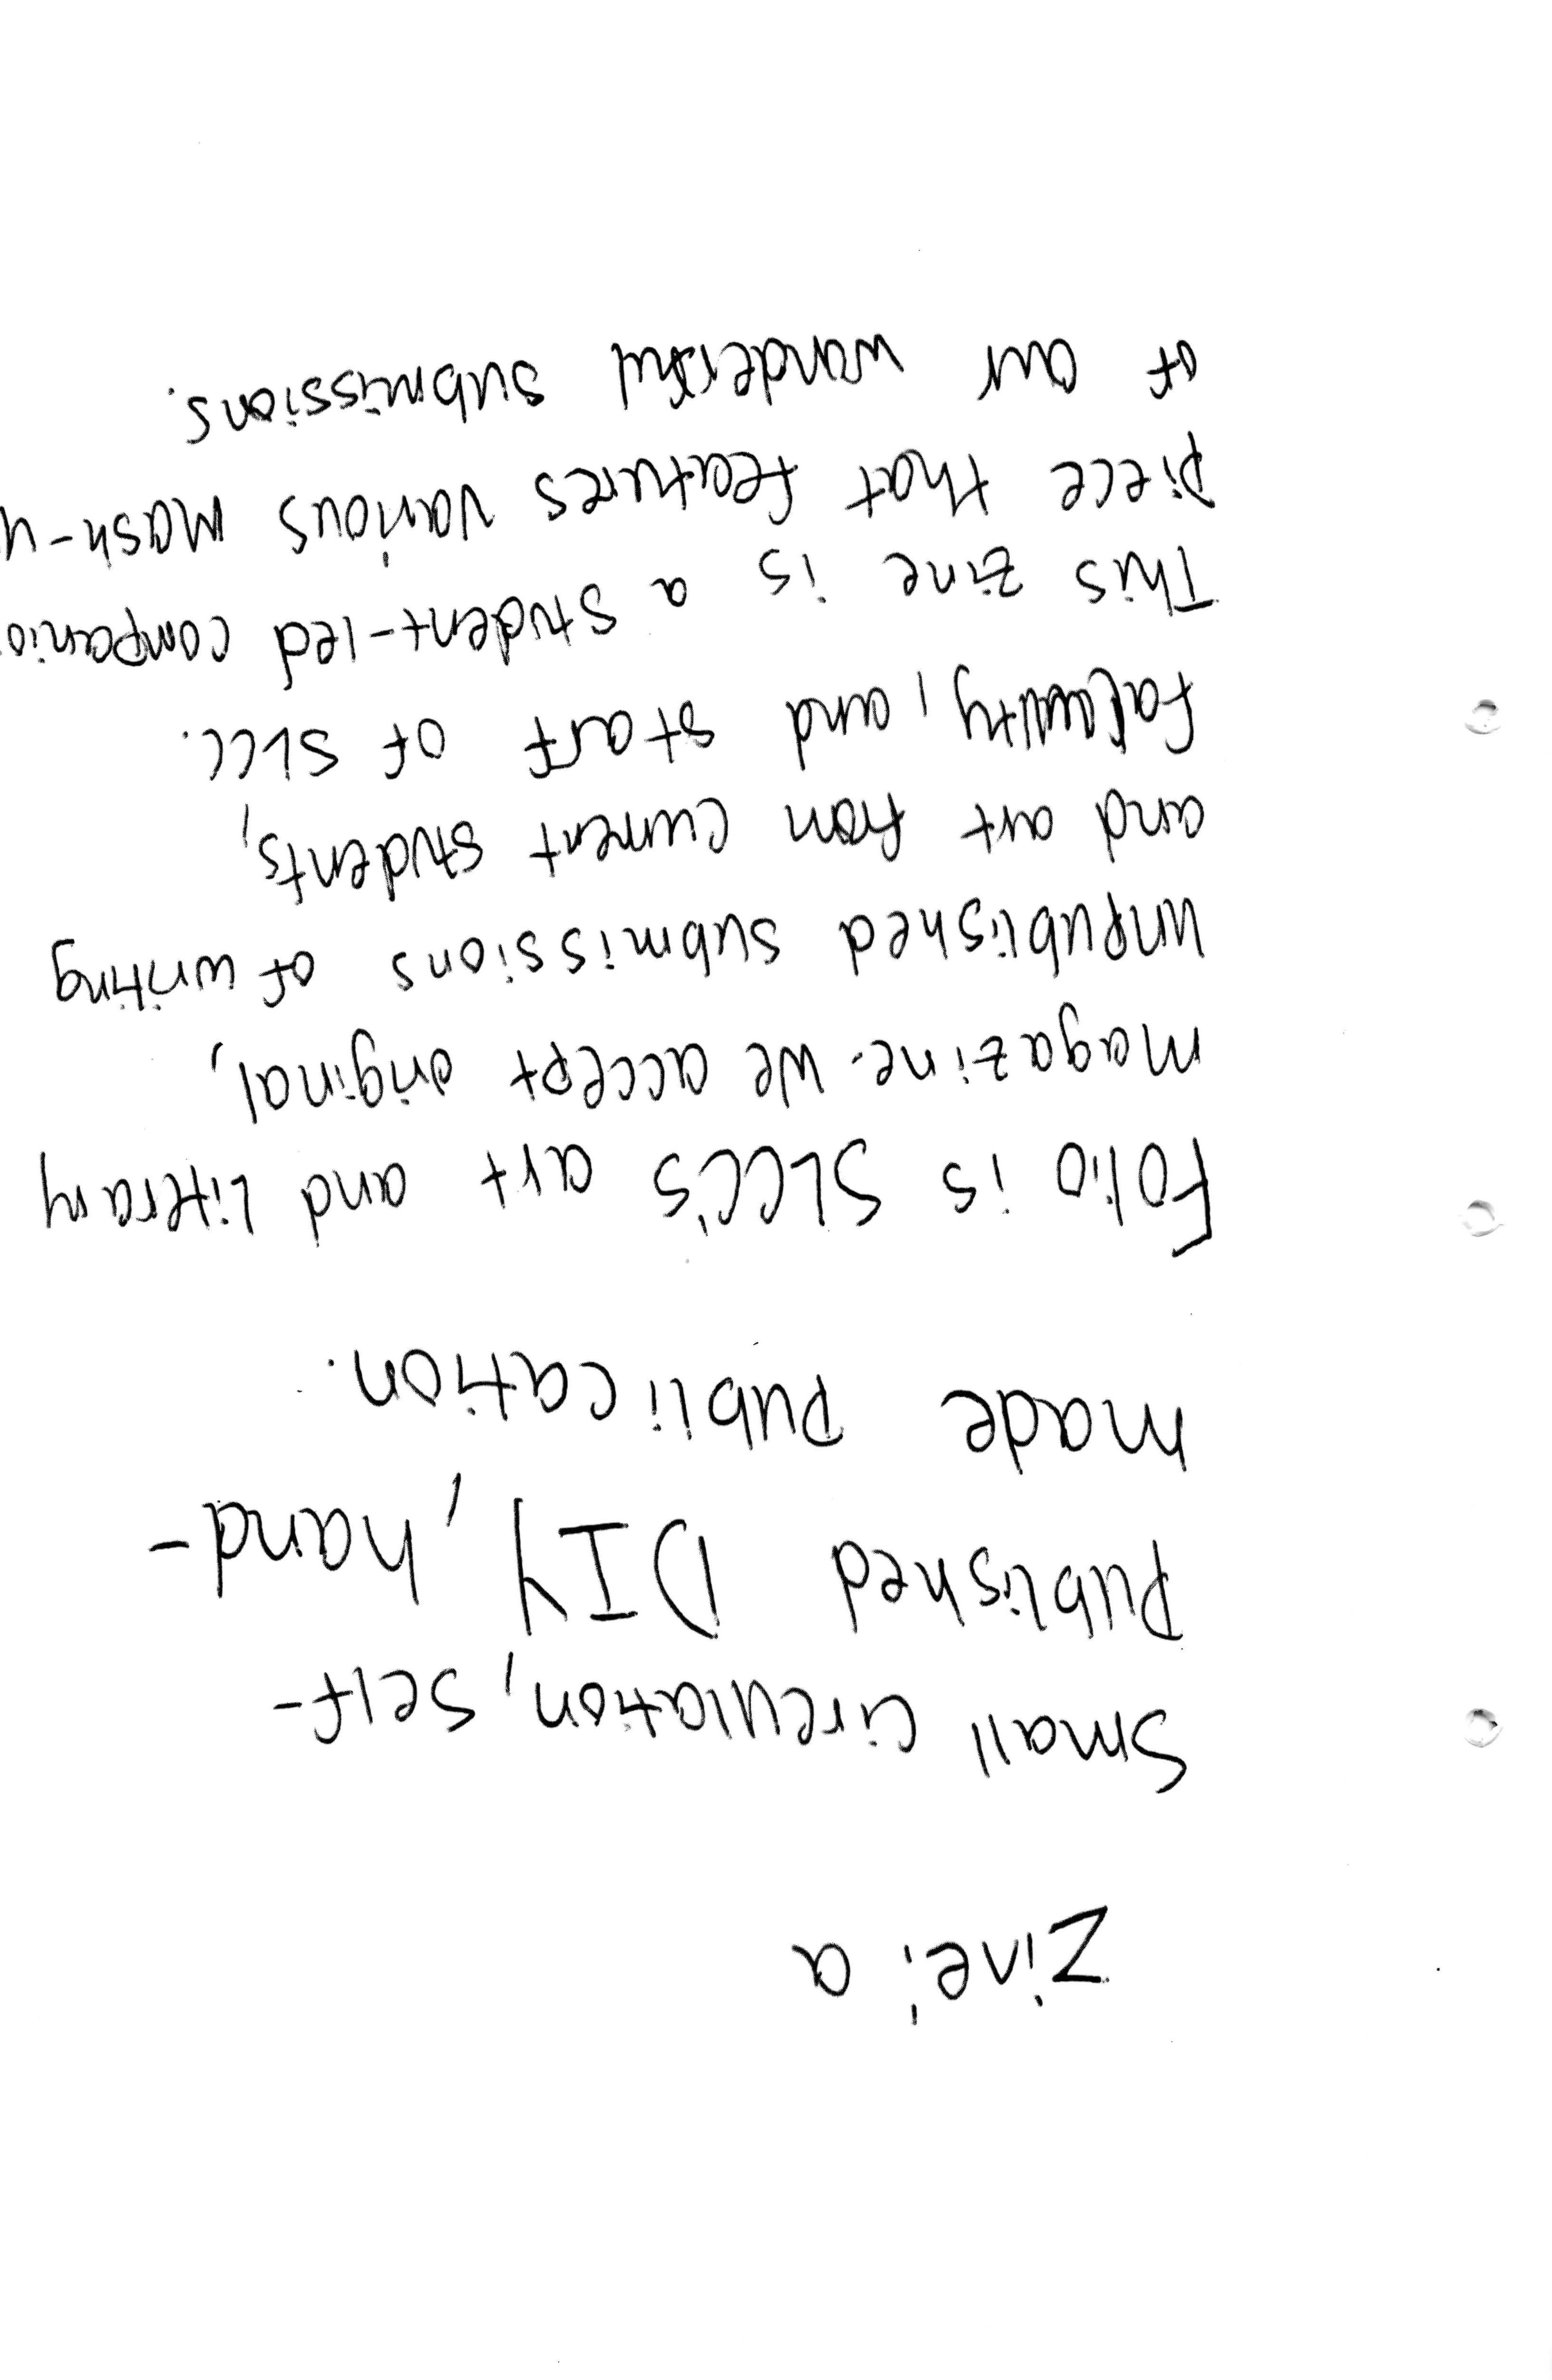 Zine: a
Small circulation, self-
published DIY, hand-
made publication.
Folio is SLCC's art and literary
magazine. We accept original,
unpublished submissions of writing
and art from current students,
faculty, and staff of SLCC.
This zine is a student-led companio
piece that features various mash-u
of our wonderful submissions.